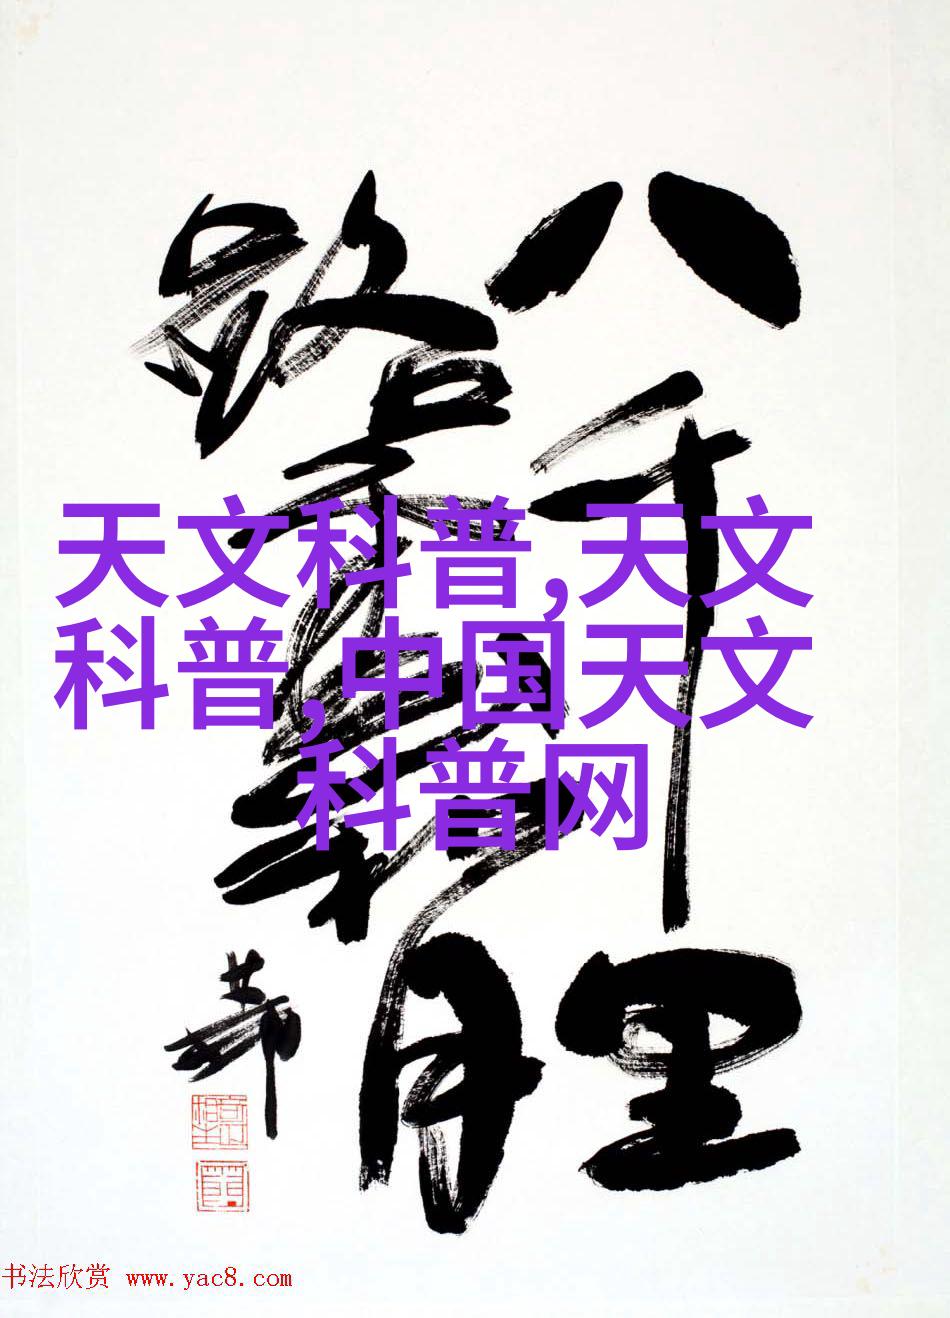 八千里
路雲和月
天文科普,天文
科普,中国天文
科普网
书法欣赏 www.yac8.com